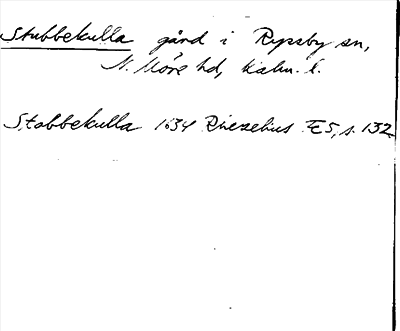 Stubbekulla gård i Ryssby sn,
N. Möre hd, Kalm. l.
Stabbekulla 1634 Rhezelius FE5, s. 132